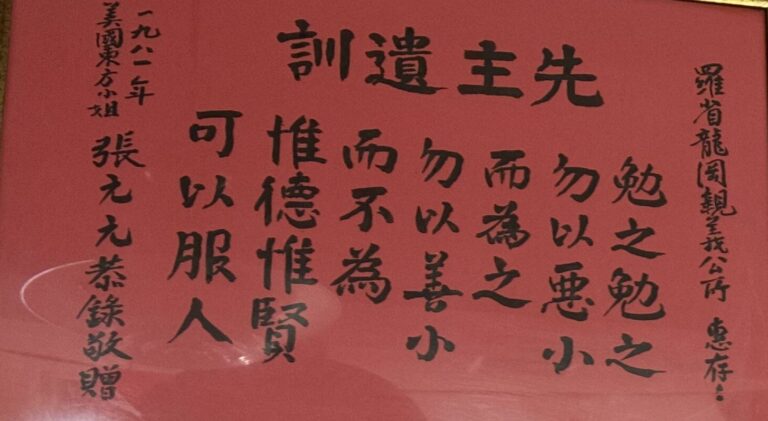 羅省龍岡親義公所 惠存
先主遺訓
勉之勉之
勿以惡小
而為之
勿以善小
而不為
惟德惟賢
可以服人
一九八一年
美國東方小姐 張元元恭錄敬贈